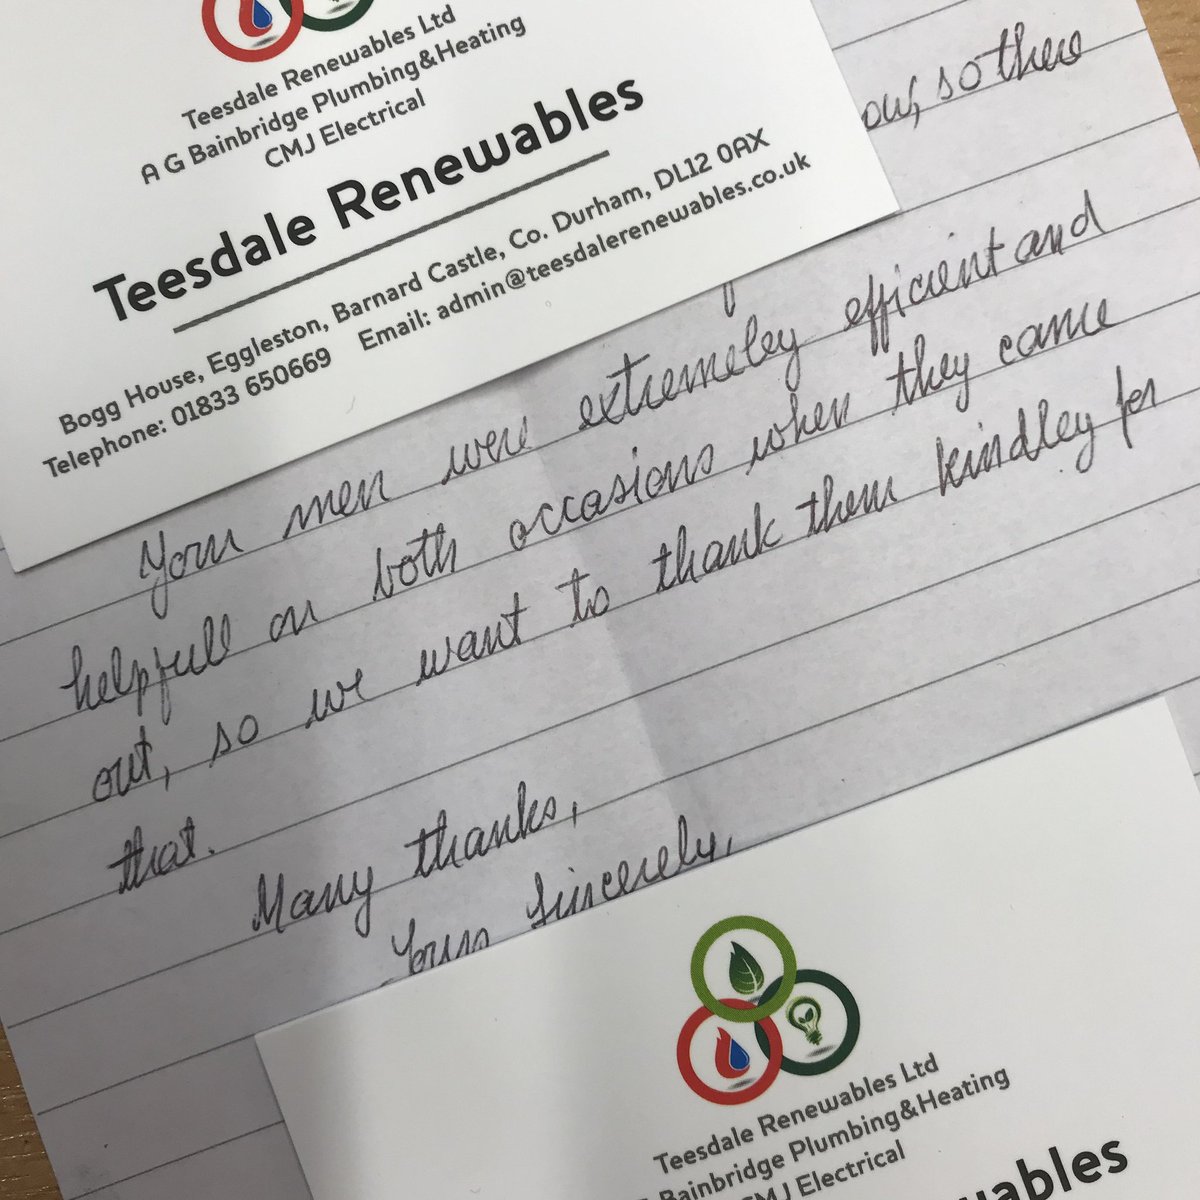 Teesdale Renewables Ltd
A G Bainbridge Plumbing&Heating
CMJ Electrical
Teesdale Renewables
Bogg House, Eggleston, Barnard Castle, Co. Durham, DL12 0AX
Telephone: 01833 650669 Email: admin@teesdalerenewables.co.uk
so there
Your men were extremeley efficient and
helpfull on both occasions when they came
out, so we want to thank them kindley for
that.
Many thanks,
Yours sincerely,
Teesdale Renewables Ltd
Bainbridge Plumbing&Heating
CMJ Electrical